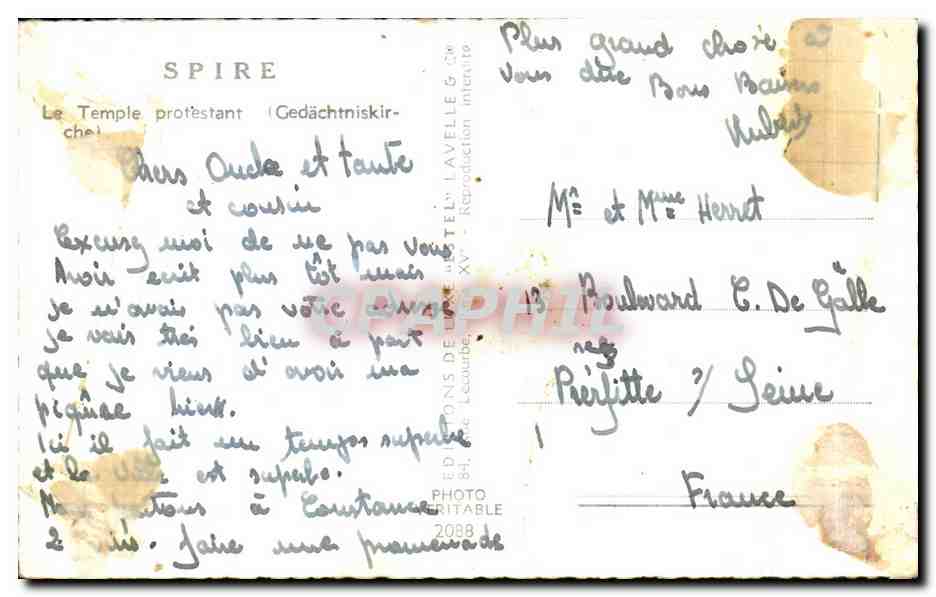 SPIRE
Le Temple protestant (Gedächtniskir-
che)
Chers Oncle et tante
et cousin
Excusez moi de ne pas vous
Avoir ecrit plus tôt mais
je n'avais pas votre
je vais très bien à part
que je viens d'avoir ma
piqûre hier.
Ici il fait un temps superbe
et la ville est superbe.
à Constance
2 faire une promenade
EDITIONS DE LUXE "ESTEL" LAVELLE & Cie
84, Rue Lecourbe, XV° - Reproduction interdite
PHOTO
VERITABLE
2088
Plus grand chose a
vous dire Bons Baisers
Hubert
Mr et Mme Herret
13 Boulward C. De Gaulle
Pierfitte s/ Seine
France
CPAPHIL